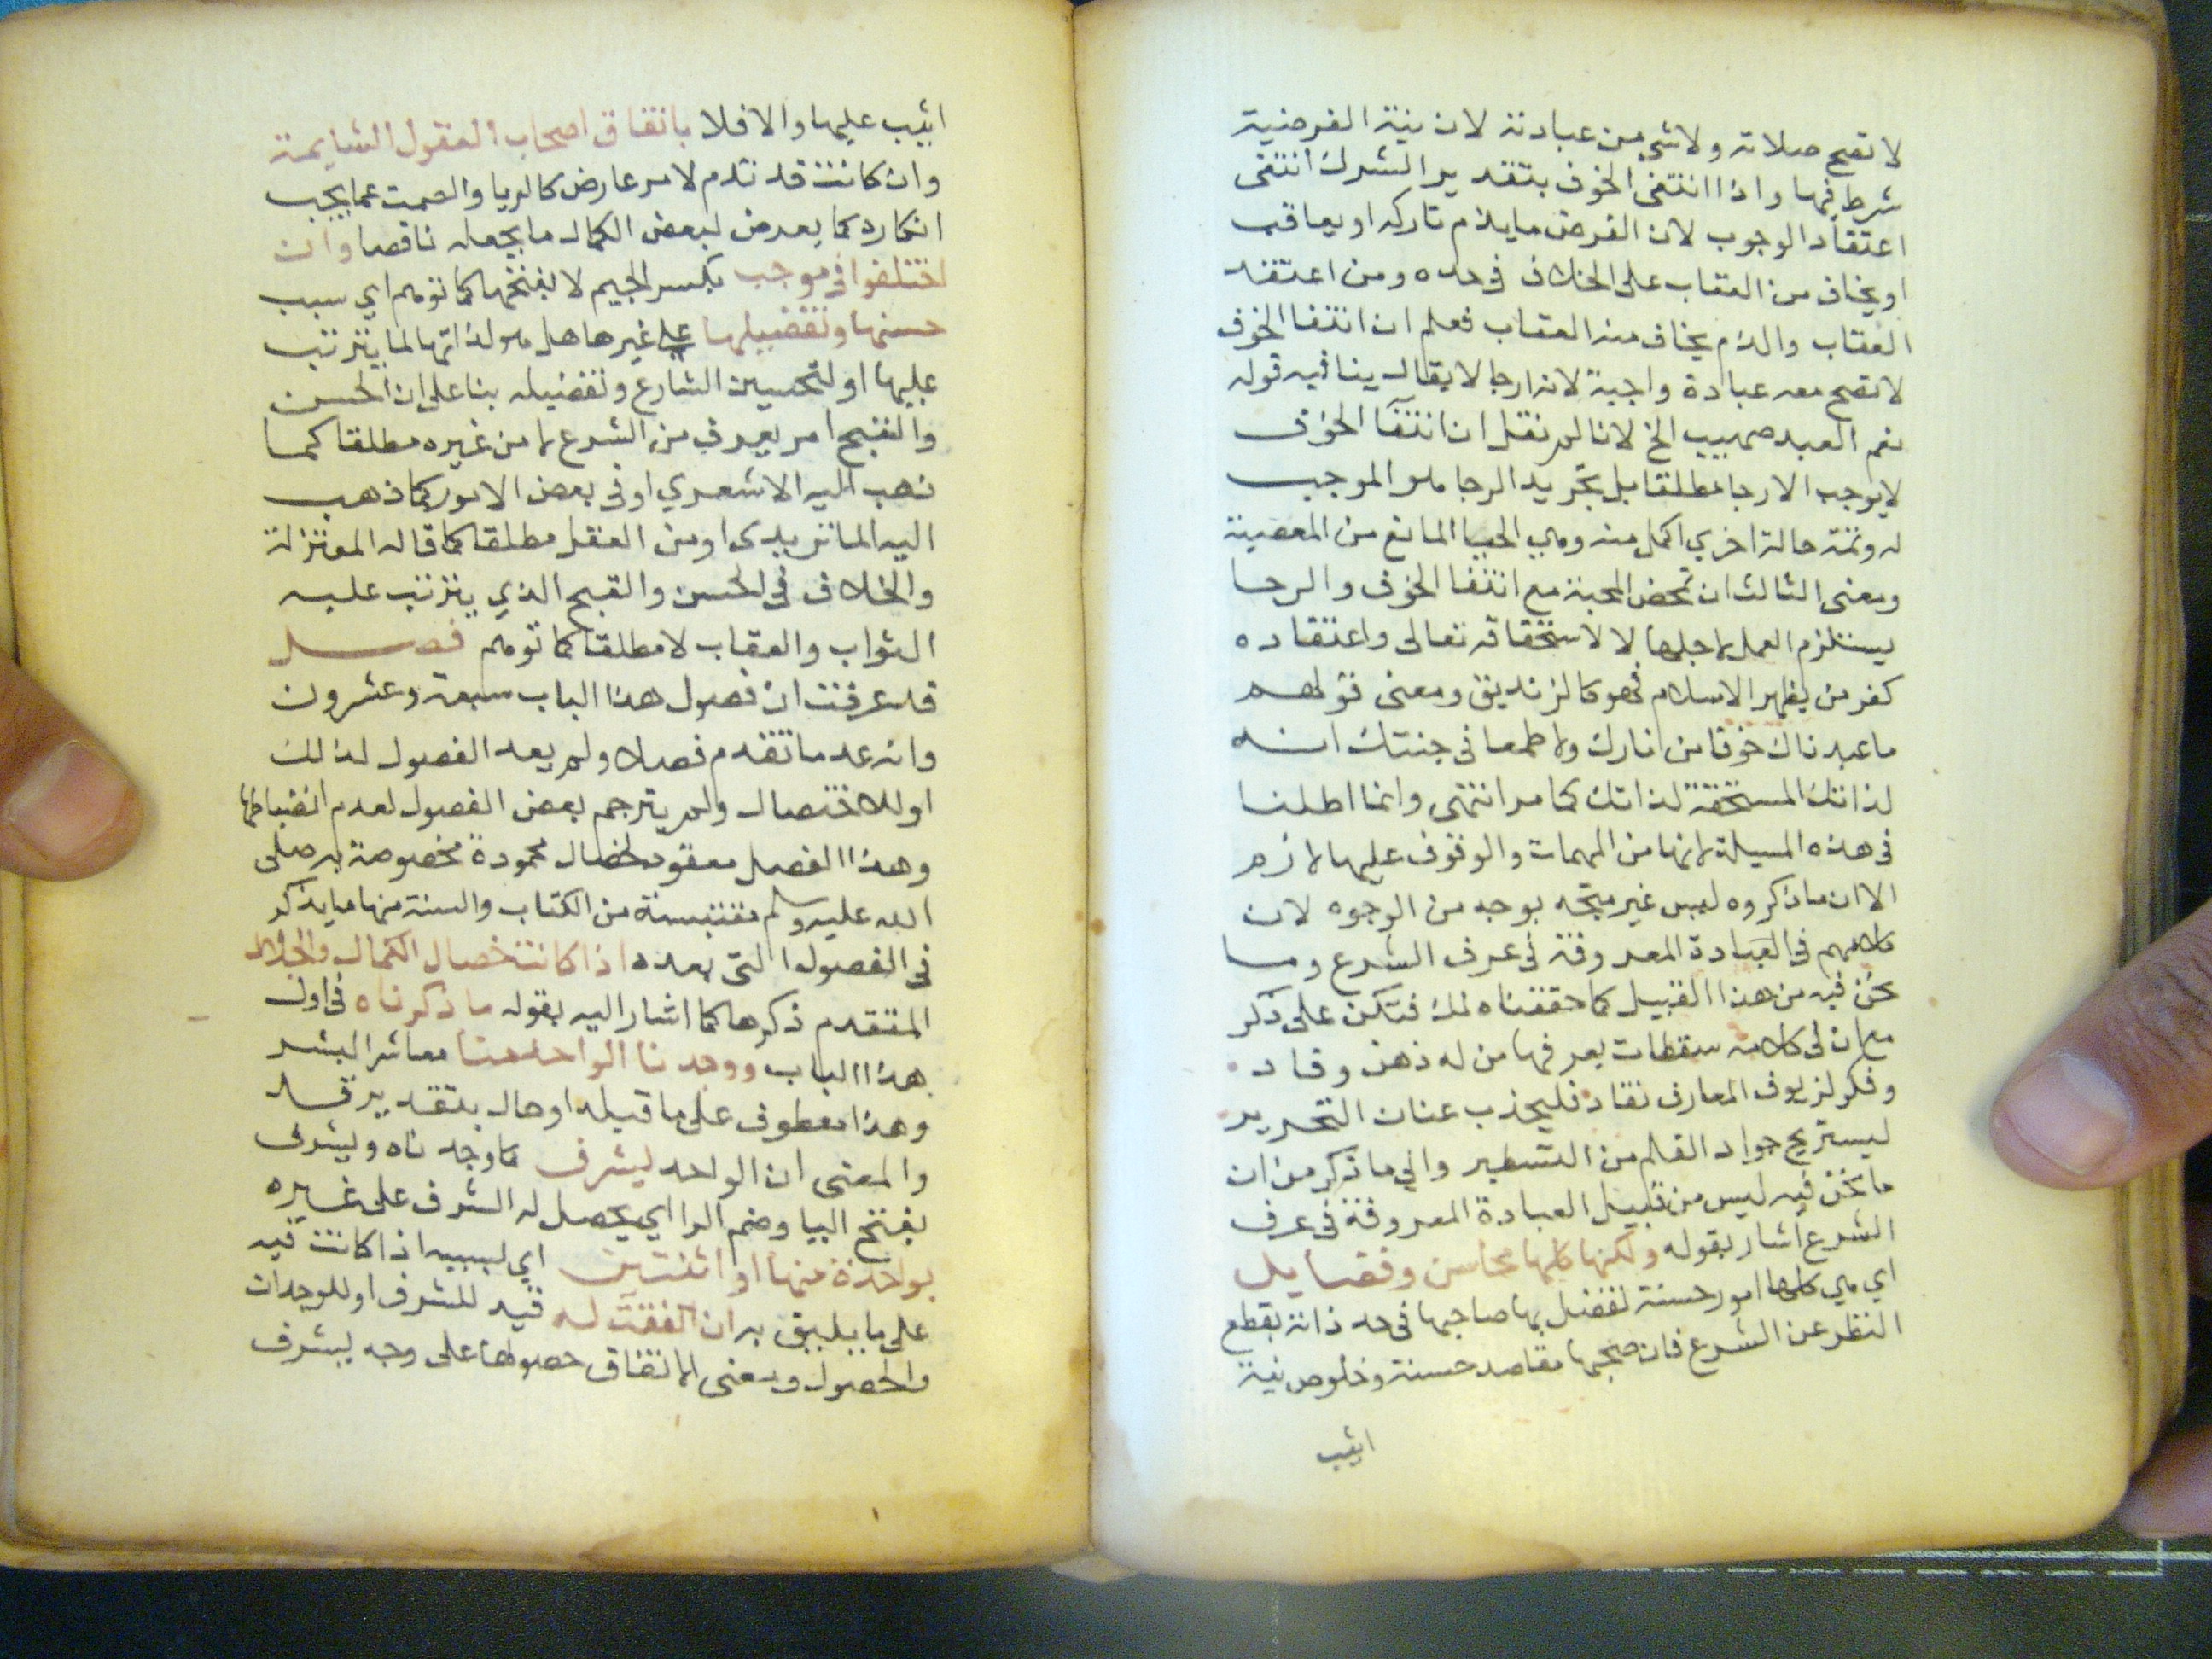 لا تصح صلاته ولا شي من عبادته لان نية الفرضية
شرط فيها واذا انتفى الخوف بتقدير الشرك انتفى
اعتقاد الوجوب لان الفرض ما يلام تاركه او يعاقب
او يخاف من العقاب على الخلاف في حده ومن اعتقد
العقاب والذم يخاف منه العقاب فعلم ان انتفا الخوف
لا تصح معه عبادة واجبة لانه ارجا لا يقال ينافيه قوله
نعم العبد صهيب الخ لانا لم نقل ان انتفآ الخوف
لا يوجب الارجا مطلقا بل تجريد الرجا هو الموجب
له وثمة حالة اخري اكمل منه وهي الحيا المانع من المعصية
ومعنى الثالث ان تمحض المحبة مع انتفا الخوف والرجا
يستلزم العمل لاجلها لا لاستحقاقه تعالى واعتقاده
كفر من يظهر الاسلام فهو كالزنديق ومعنى قولهم
ما عبدناك خوفا من نارك ولا طمعا في جنتك انه
لذاتك المستحقة لذاتك كما مر انتهى وانما اطلنا
في هذه المسيلة لانها من المهمات والوقوف عليها لازم
الا ان ما ذكروه ليس غير متجه بوجه من الوجوه لان
كلامهم في العبادة المعروفة في عرف الشرع وما
نحن فيه من هذا القبيل كما حققناه لك فتكن على ذكر
مع ان في كلامه سقطات يعرفها من له ذهن وقاد
وفكر لزيوف المعارف نقاد فليجذب عنان التحرير
ليستريح جواد القلم من التسطير والي ما ذكر من ان
ما نحن فيه ليس من قبيل العبادة المعروفة في عرف
الشرع اشار بقوله ولكنها كلها محاسن وفضايل
اي هي كلها امور حسنة تفضل بها صاحبها في حد ذاته بقطع
النظر عن الشرع فان صحبها مقاصد حسنة وخلوص نية
اثيب
اثيب عليها والا فلا باتفاق اصحاب العقول السليمة
وان كانت قد تذم لامر عارض كالريا والصمت عما يجب
انكاره كما يعرض لبعض الكمال ما يجعله ناقصا وان
اختلفوا في موجب بكسر الجيم لا بفتحها كما توهم اي سبب
حسنها وتفضيلها على غيرها هل هو لذاتها لما يترتب
عليها او لتحسين الشارع وتفضيله بنا على ان الحسن
والقبح امر يعرف من الشرع لا من غيره مطلقا كما
ذهب اليه الاشعري او في بعض الامور كما ذهب
اليه الماتريدى او من العقل مطلقا كما قاله المعتزلة
والخلاف في الحسن والقبح الذي يترتب عليه
الثواب والعقاب لا مطلقا كما توهم فصل
قد عرفت ان فصول هذا الباب سبعة وعشرون
وانه عد ما تقدم فصلا ولم يعد الفصول لذلك
او للاختصار ولم يترجم بعض الفصول لعدم انضباطها
وهذا الفصل معقود لخصال محمودة مخصوصة به صلى
الله عليه وسلم مقتبسة من الكتاب والسنة منها ما يذكر
في الفصول التى بعده اذا كانت خصال الكمال والجلال
المتقدم ذكرها كما اشار اليه بقوله ما ذكرناه في اول
هذا الباب ووجدنا الواحد منا معاشر البشر
وهذا معطوف على ما قبله او حال بتقدير قد
والمعنى ان الواحد يشرف كما وجدناه ويشرف
بفتح اليا وضم الرا اي يحصل له الشرف على غيره
بواحدة منها او اثنتين اي لسببه اذا كانت فيه
على ما يليق به ان اتفقت له قيد للشرف او للوجدان
والحصول ومعنى الاتفاق حصولها على وجه يشرف